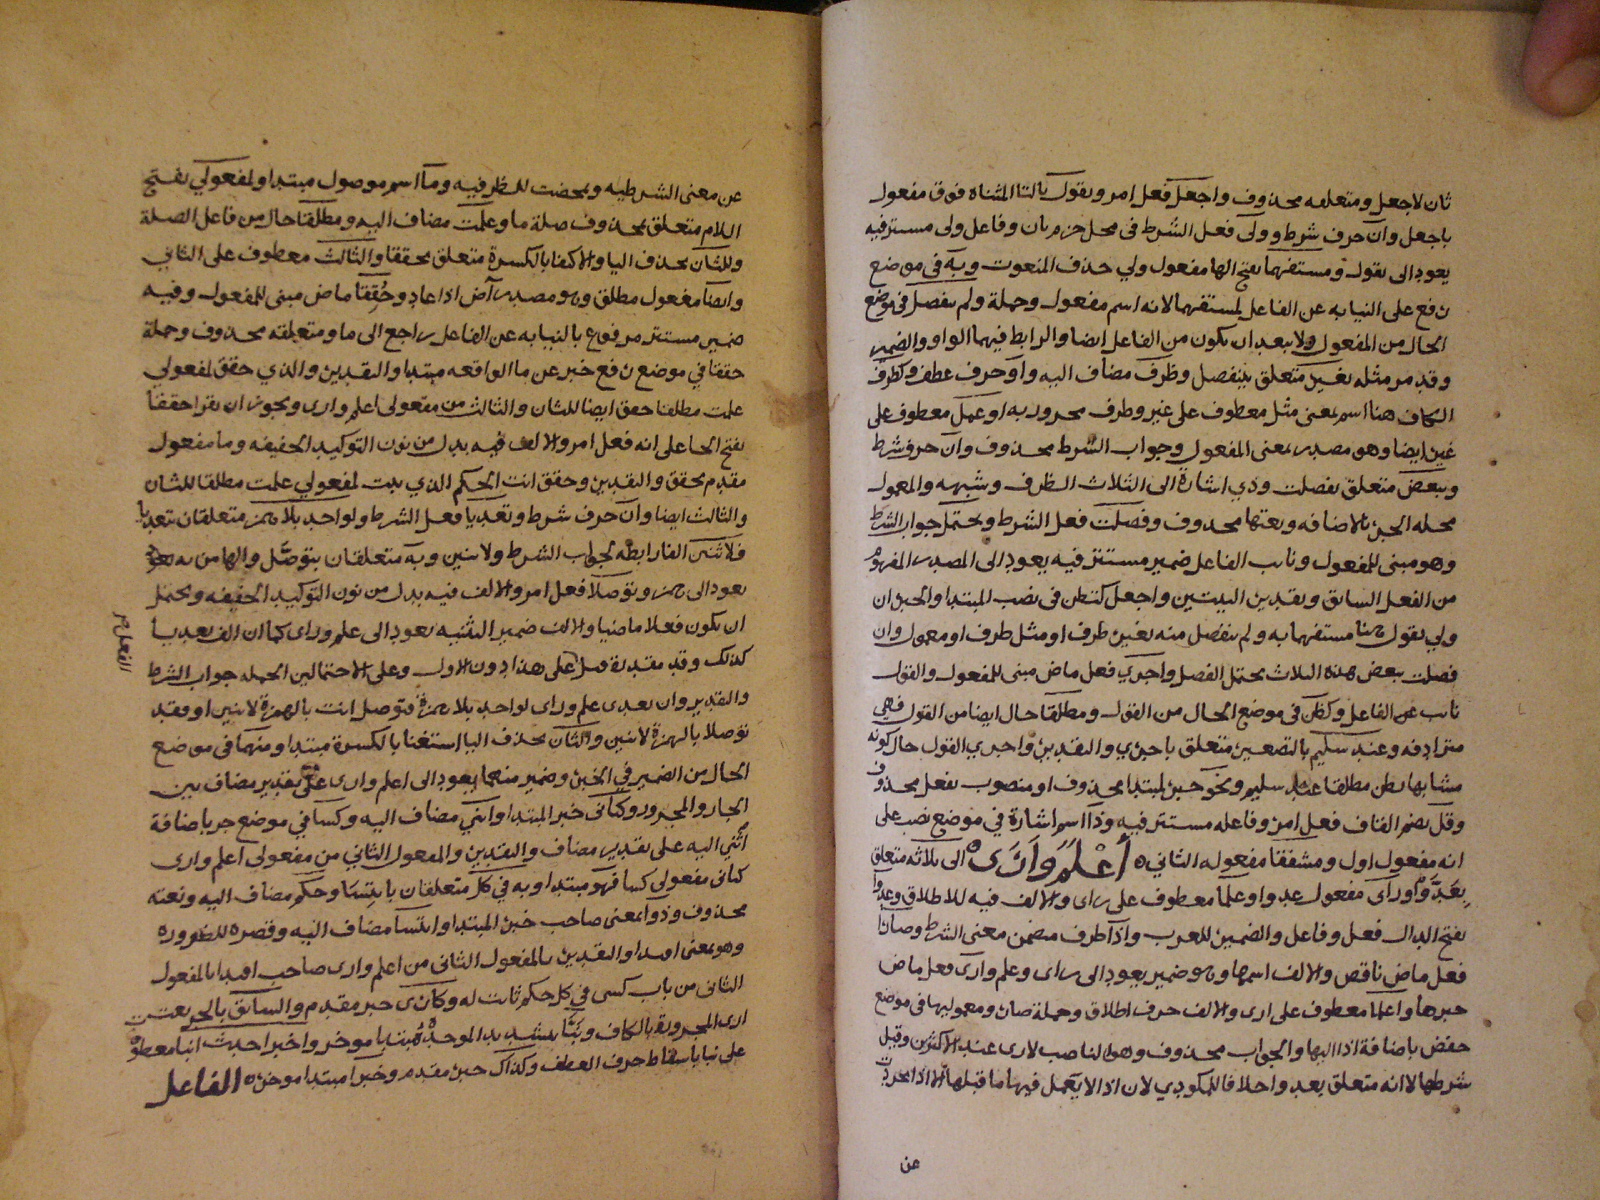 ثان لاجعل ومتعلقه محذوف واجعل فعل امر وبقول بالتا المثناه فوق مفعول
باجعل وان حرف شرط وولى فعل الشرط فى محل جزم بان وفاعل ولى مستتر فيه
يعود الى تقول ومستفهما بفتح الها مفعول ولي حذف المنعوت وبه فى موضع
رفع على النيابه عن الفاعل لمستفهما لانه اسم مفعول وجملة ولم ينفصل فى موضع
الحال من المفعول ولا يبعد ان يكون من الفاعل ايضا والرابط فيهما الواو والضمير
وقد مر مثله بغير متعلق بينفصل وظرف مضاف اليه واو حرف عطف وكظرف
الكاف هنا اسم بمعنى مثل معطوف على غير وظرف مجرور به او عمل معطوف على
غير ايضا وهو مصدر بمعنى المفعول وجواب الشرط محذوف وان حرف شرط
وببعض متعلق بفصلت وذي اشارة الى الثلاث الظرف وشبهه والمعمول
محله الجر بالاضافه ونعتها محذوف وفصلت فعل الشرط ويحتمل جواب الشرط
وهو مبنى للمفعول ونايب الفاعل ضمير مستتر فيه يعود الى المصدر المفهوم
من الفعل السابق وتقدير البيتين واجعل كتظن فى نصب المبتدا والخبر ان
ولي تقول هنا مستفهما به ولم ينفصل منه بغير ظرف او مثل ظرف او معمول وان
فصلت ببعض هذه الثلاث يحتمل الفصل واجري فعل ماض مبنى للمفعول والقول
نايب عن الفاعل وكظن فى موضع الحال من القول ومطلقا حال ايضا من القول فهي
مترادفه وعند سليم بالتصغير متعلق باجري والتقدير واجري القول حال كونه
مشابها لظن مطلقا عند سليم ونحو خبر لمبتدا محذوف او منصوب بفعل محذوف
وقل بضم القاف فعل امر وفاعله مستتر فيه وذا اسم اشارة في موضع نصب على
انه مفعول اول ومشفقا مفعوله الثاني ه أعلم وأرى ه الى ثلاثه متعلق
بعدوا وراى مفعول عدوا وعلما معطوف على راى والالف فيه للاطلاق وعدوا
بفتح الدال فعل وفاعل والضمير للعرب واذا ظرف مضمن معنى الشرط وصارا
فعل ماض ناقص والالف اسمها وهو ضمير يعود الى راى وعلم وارى فعل ماض
خبرها واعلما معطوف على ارى والالف حرف اطلاق وجملة صار ومعموليها فى موضع
خفض باضافة اذا اليها والجواب محذوف وهو الناصب لاذا عند الاكثرين وقيل
شرطها لا انه متعلق بعدوا خلافا للمكودي لان اذا لا يعمل فيها ما قبلها الا اذا تجردت
عن
عن معنى الشرطيه وتمحضت للظرفيه وما اسم موصول مبتدا ولمفعولي بفتح
اللام متعلق بمحذوف صلة ما وعلمت مضاف اليه ومطلقا حال من فاعل الصلة
وللثان بحذف اليا والاكتفا بالكسرة متعلق بحققا والثالث معطوف على الثاني
وايضا مفعول مطلق وهو مصدر آض اذا عاد وحُققا ماض مبنى للمفعول وفيه
ضمير مستتر مرفوع بالنيابه عن الفاعل راجع الى ما ومتعلقه محذوف وجملة
حققا في موضع رفع خبر عن ما الواقعه مبتدا والتقدير والذي حقق لمفعولي
علمت مطلقا حقق ايضا للثان والثالث من مفعولى اعلم وارى ويجوز ان يقرا حققا
بفتح الحا على انه فعل امر والالف فيه بدل من نون التوكيد الخفيفه وما مفعول
مقدم بحقق والتقدير وحقق انت الحكم الذي ثبت لمفعولي علمت مطلقا للثان
والثالث ايضا وان حرف شرط وتعديا فعل الشرط ولواحد بلا همز متعلقان بتعديا
فلاثنين الفا رابطه لجواب الشرط ولاثنين وبه متعلقان بتوصل والها من به
يعود الى همز وتوصلا فعل امر والالف فيه بدل من نون التوكيد الخفيفه ويحتمل
ان يكون فعلا ماضيا والالف ضمير التثنيه يعود الى علم وراى كما ان الف تعديا
كذلك وقد مقدرة قبل الفعل على هذا دون الاول وعلى الاحتمالين الجمله جواب الشرط
والتقدير وان تعدى علم وراى لواحد بلا همزة فتوصل انت بالهمزة لاثنين او فقد
توصلا بالهمزة لاثنين والثان بحذف اليا استغنا بالكسرة مبتدا ومنهما في موضع
الحال من الضمير في الخبر وضمير منهما يعود الى اعلم وارى على تقدير مضاف بين
الجار والمجرور وكثانى خبر المبتدا واثني مضاف اليه وكسا في موضع جر باضافة
اثني اليه على تقدير مضاف والتقدير والمفعول الثاني من مفعولى اعلم وارى
كثانى مفعولى كسا فهو مبتدا وبه في كل متعلقان بايتسا وحكم مضاف اليه ونعته
محذوف وذو بمعنى صاحب خبر المبتدا وايتسا مضاف اليه وقصره للضروره
وهو بمعنى اقتدا والتقدير فالمفعول الثانى من اعلم وارى صاحب اقتدا بالمفعول
الثانى من باب كسى في كل حكم ثابت له وكارى خبر مقدم والسابق بالجر نعت
ارى المجرورة بالكاف ونبّا بتشديد الموحدة مبتدا موخر واخبرا حدث انبا معطوفه
على نبا باسقاط حرف العطف وكذاك خبر مقدم وخبرا مبتدا موخر ه الفاعل